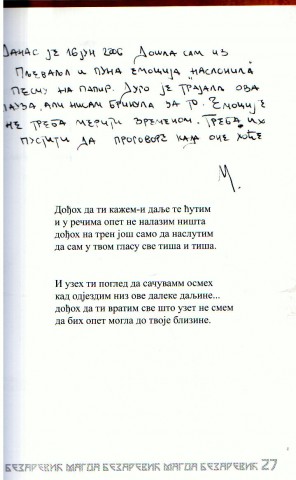 ДАНАС ЈЕ 16 ЈУН 2006 ДОШЛА САМ ИЗ
ПЉЕВАЉА И ПУНА ЕМОЦИЈА НАСЛОНИЛА
ПЕСМУ НА ПАПИР. ДУГО ЈЕ ТРАЈАЛА ОВА
ПАУЗА, АЛИ НИСАМ БРИНУЛА ЗА ТО. ЕМОЦИЈЕ
НЕ ТРЕБА МЕРИТИ ВРЕМЕНОМ. ТРЕБА ИХ
ПУСТИТИ ДА ПРОГОВОРЕ КАДА ОНЕ ХОЋЕ
М.
Дођох да ти кажем-и даље те ћутим
и у речима опет не налазим ништа
дођох на трен још само да наслутим
да сам у твом гласу све тиша и тиша.
И узех ти поглед да сачувамм осмех
кад одјездим низ ове далеке даљине...
дођох да ти вратим све што узет не смем
да бих опет могла до твоје близине.
БЕЗАРЕВИЋ МАГДА БЕЗАРЕВИЋ МАГДА БЕЗАРЕВИЋ 27